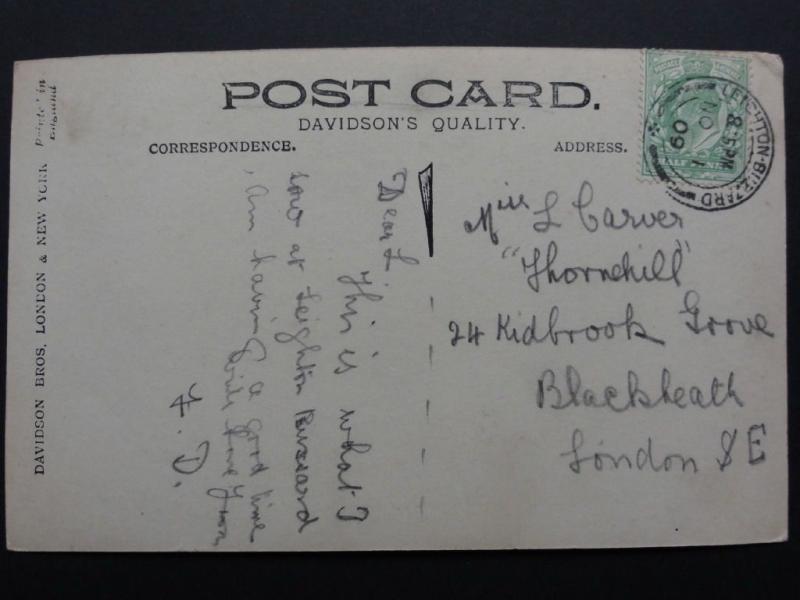 POST CARD.
DAVIDSON'S QUALITY.
CORRESPONDENCE.
ADDRESS.
DAVIDSON BROS, LONDON & NEW YORK
Printed in
England
LEIGHTON-BUZZARD
8.15PM
NO 1
09
Dear L
This is what I
saw at Leighton Buzzard
Am having a good time
love from
F. D.
Miss L Carver
"Thornehill"
24 Kidbrook Grove
Blackheath
London SE